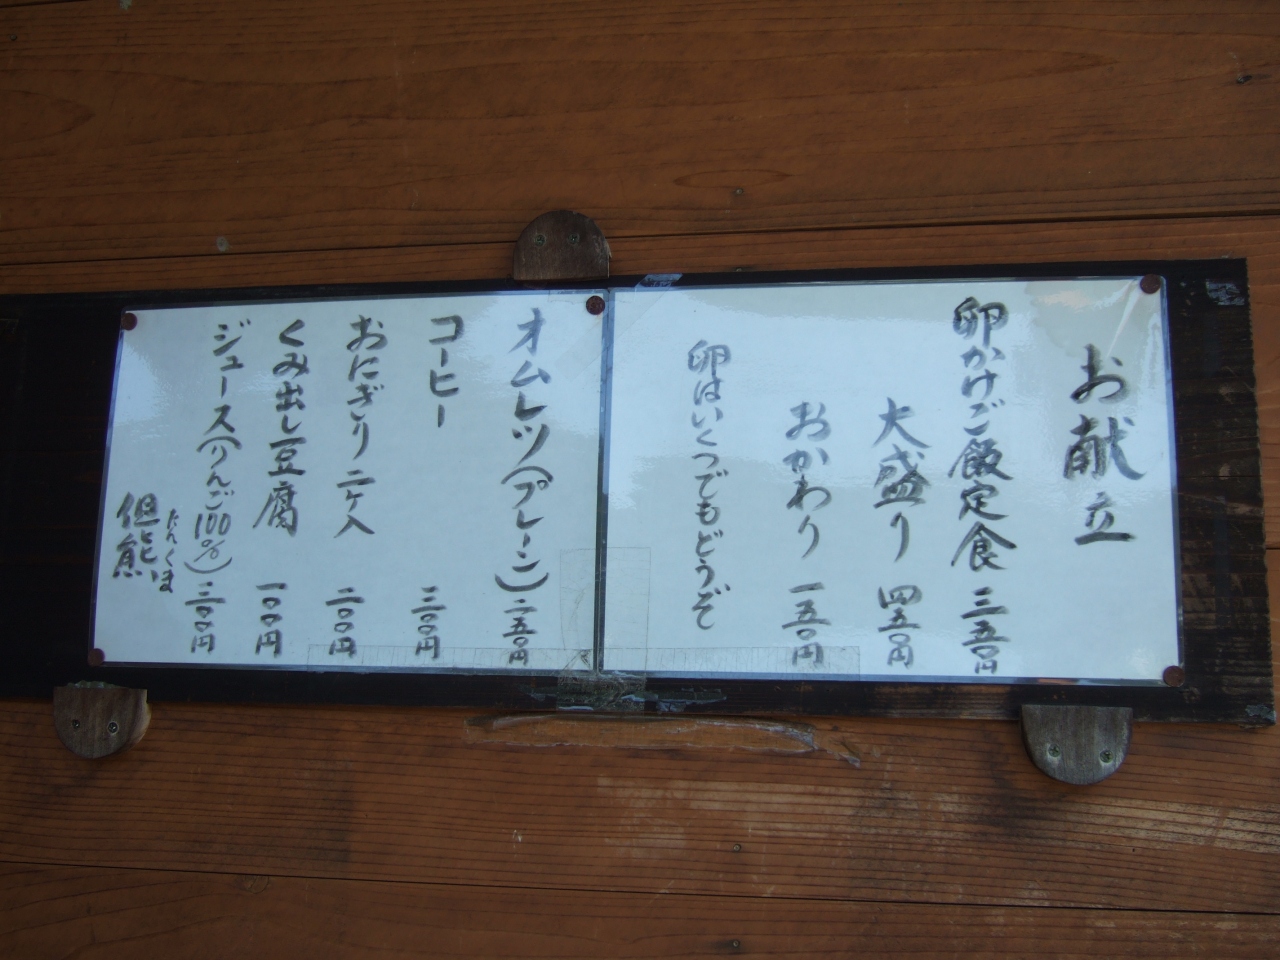 お献立
卵かけご飯定食 三五〇円
大盛り 四五〇円
おかわり 一五〇円
卵はいくつでもどうぞ
オムレツ(プレーン) 二五〇円
コーヒー 三〇〇円
おにぎり 二ケ入 二〇〇円
くみ出し豆腐 一〇〇円
ジュース(りんご100%) 三〇〇円
たんくま
但熊